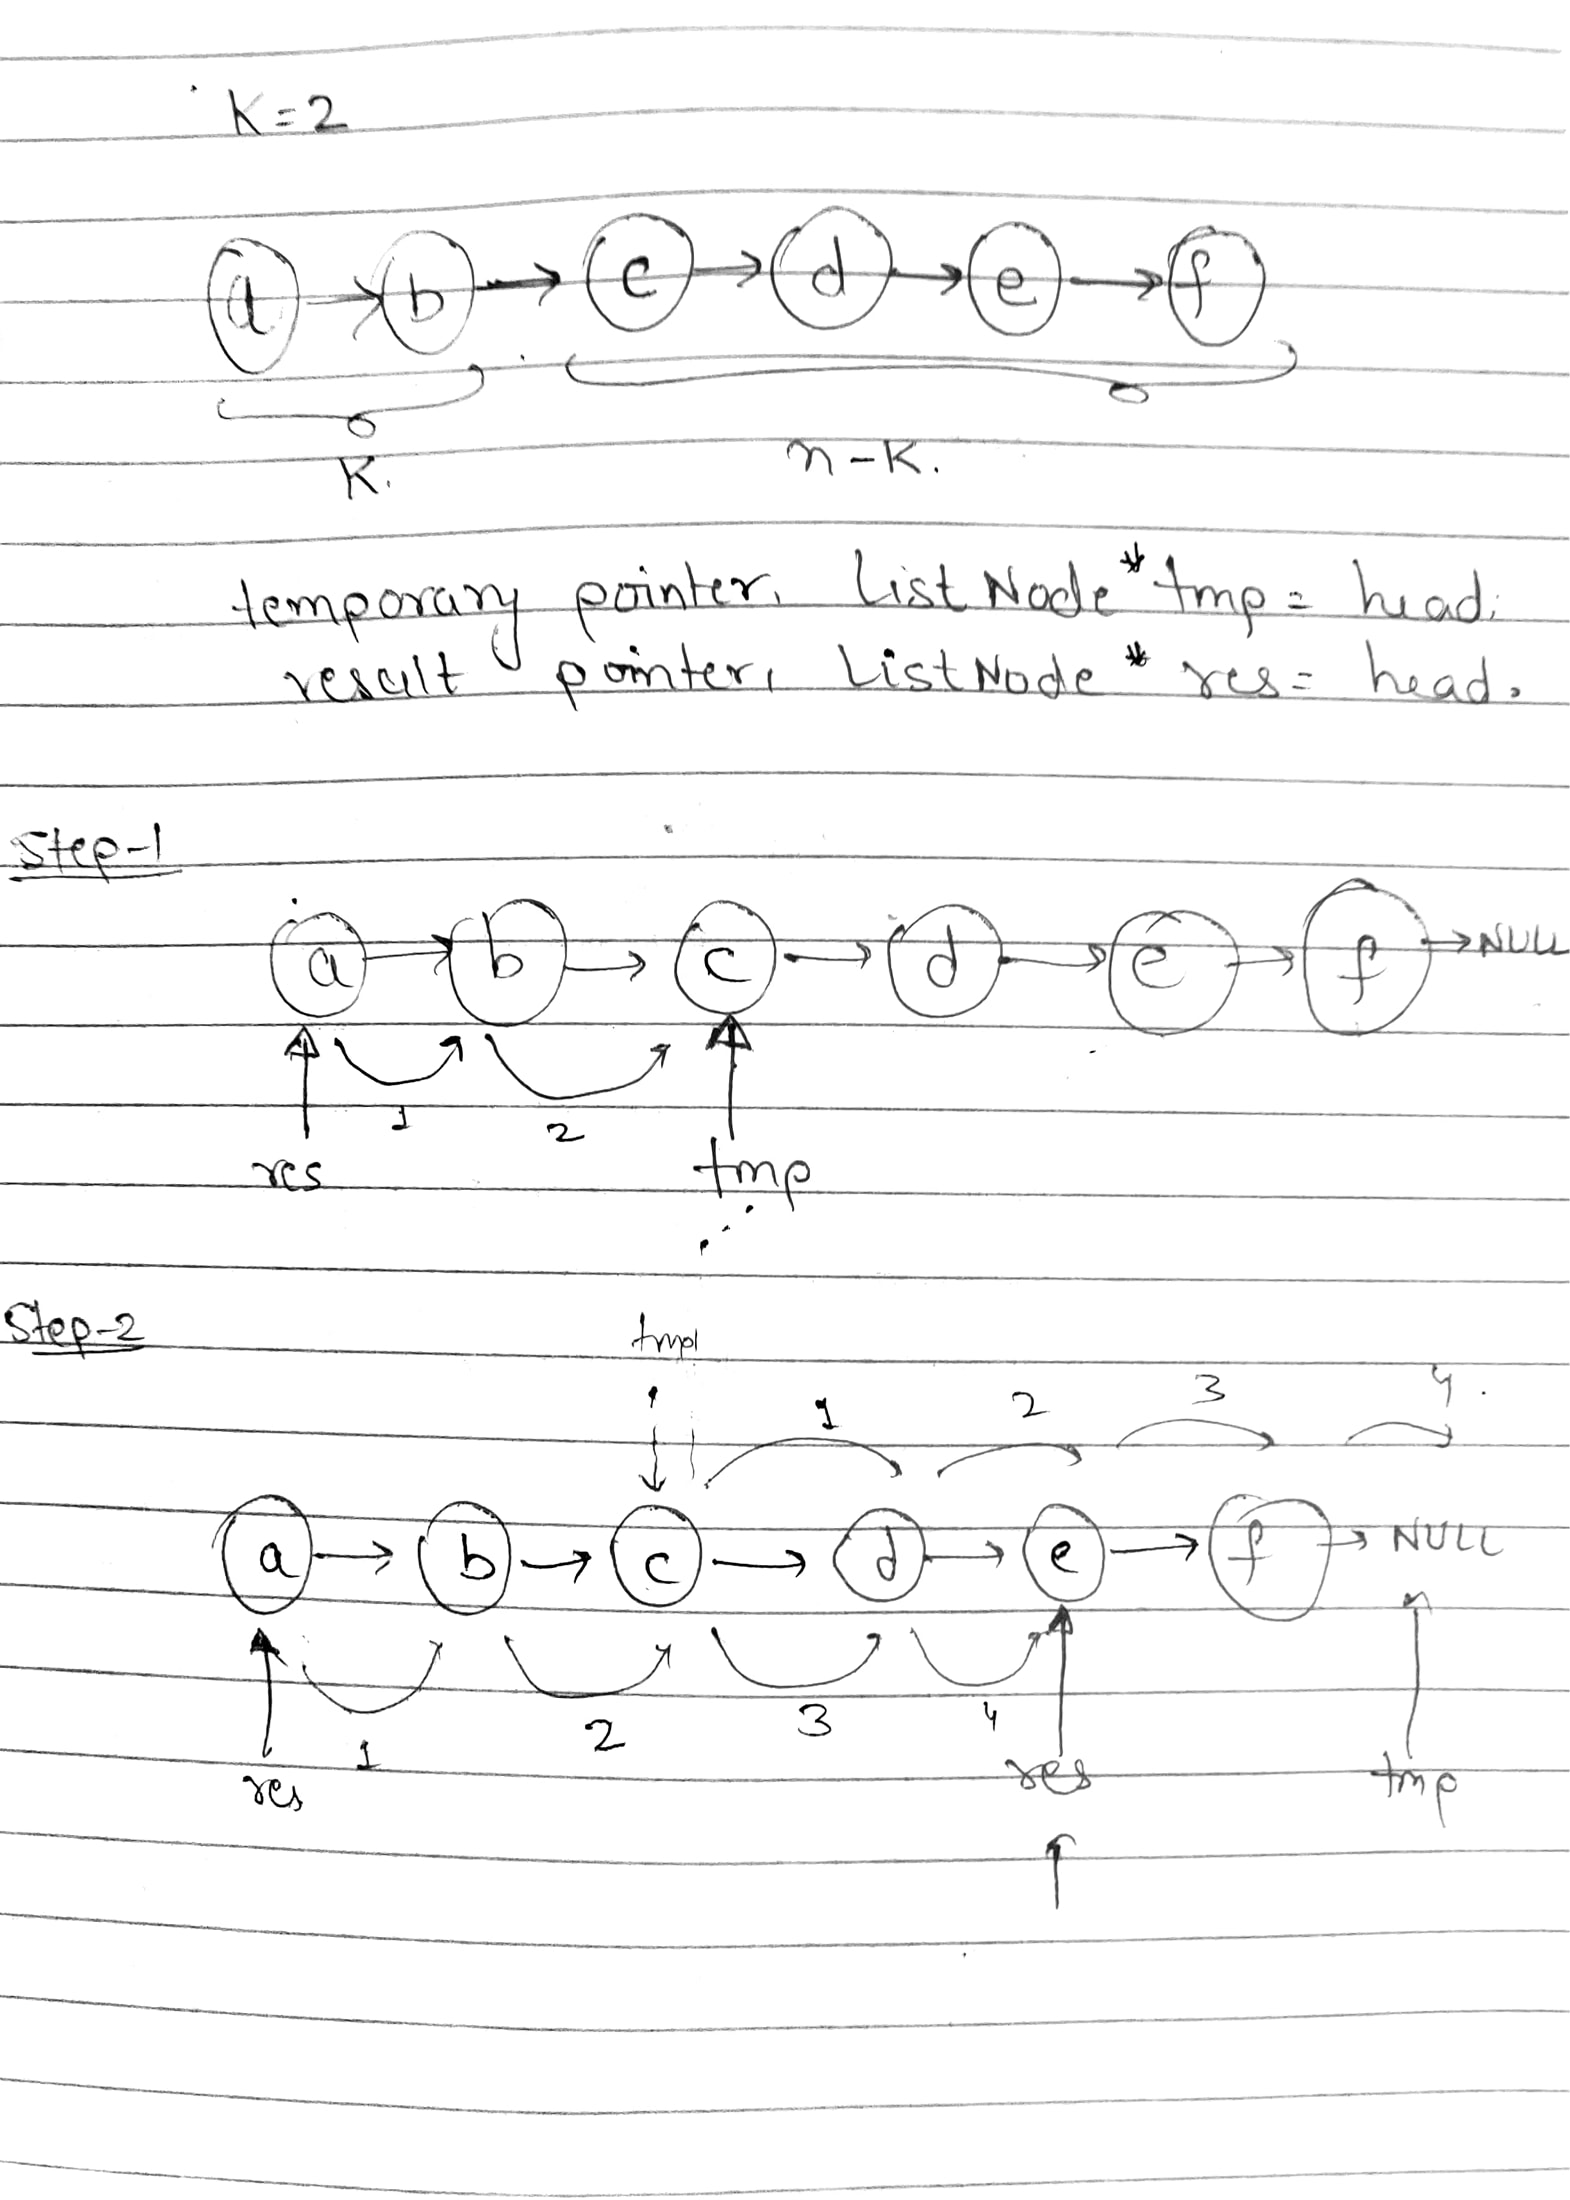 K=2
a → b → c → d → e → f
K. n-K.
temporary pointer, List Node * tmp = head;
result pointer, ListNode * res = head.
Step-1
a → b → c → d → e → f → NULL
1 2
res tmp
Step-2
tmp
1 2 3 4.
a → b → c → d → e → f → NULL
1 2 3 4
res res tmp